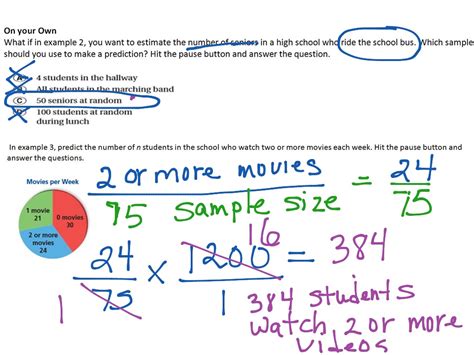 On your Own
What if in example 2, you want to estimate the number of seniors in a high school who ride the school bus. Which sample
should you use to make a prediction? Hit the pause button and answer the question.
A 4 students in the hallway
B All students in the marching band
C 50 seniors at random
D 100 students at random
during lunch
In example 3, predict the number of n students in the school who watch two or more movies each week. Hit the pause button and
answer the questions.
Movies per Week
1 movie
21
0 movies
30
2 or more
movies
24
2 or more movies = 24
75 sample size 75
16
24 × 1200 = 384
1 75 1
384 students
watch 2 or more
videos